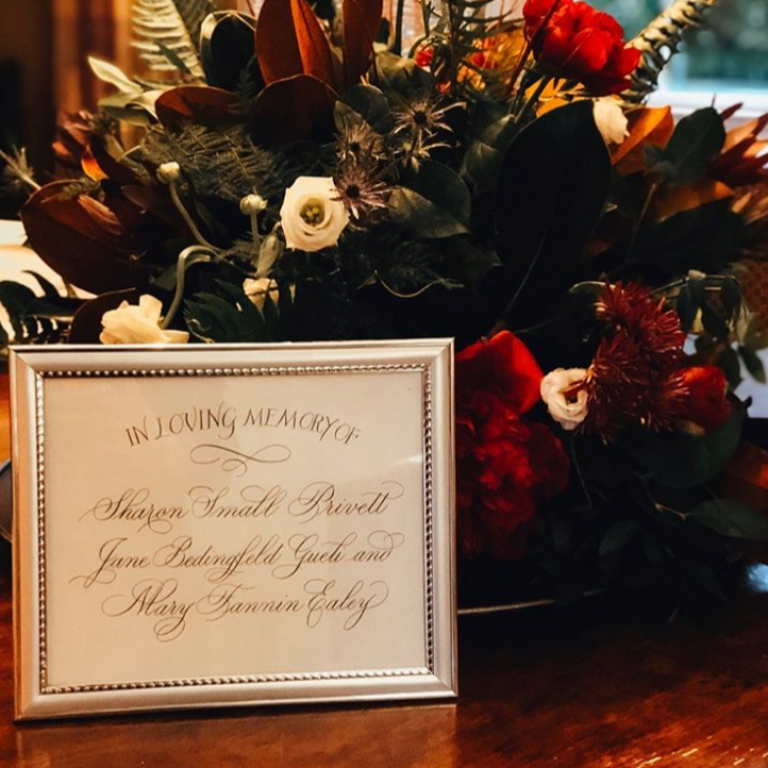 IN LOVING MEMORY OF
Sharon Small Privett
Jane Bedingfeld Gueli and
Mary Fannin Ealey